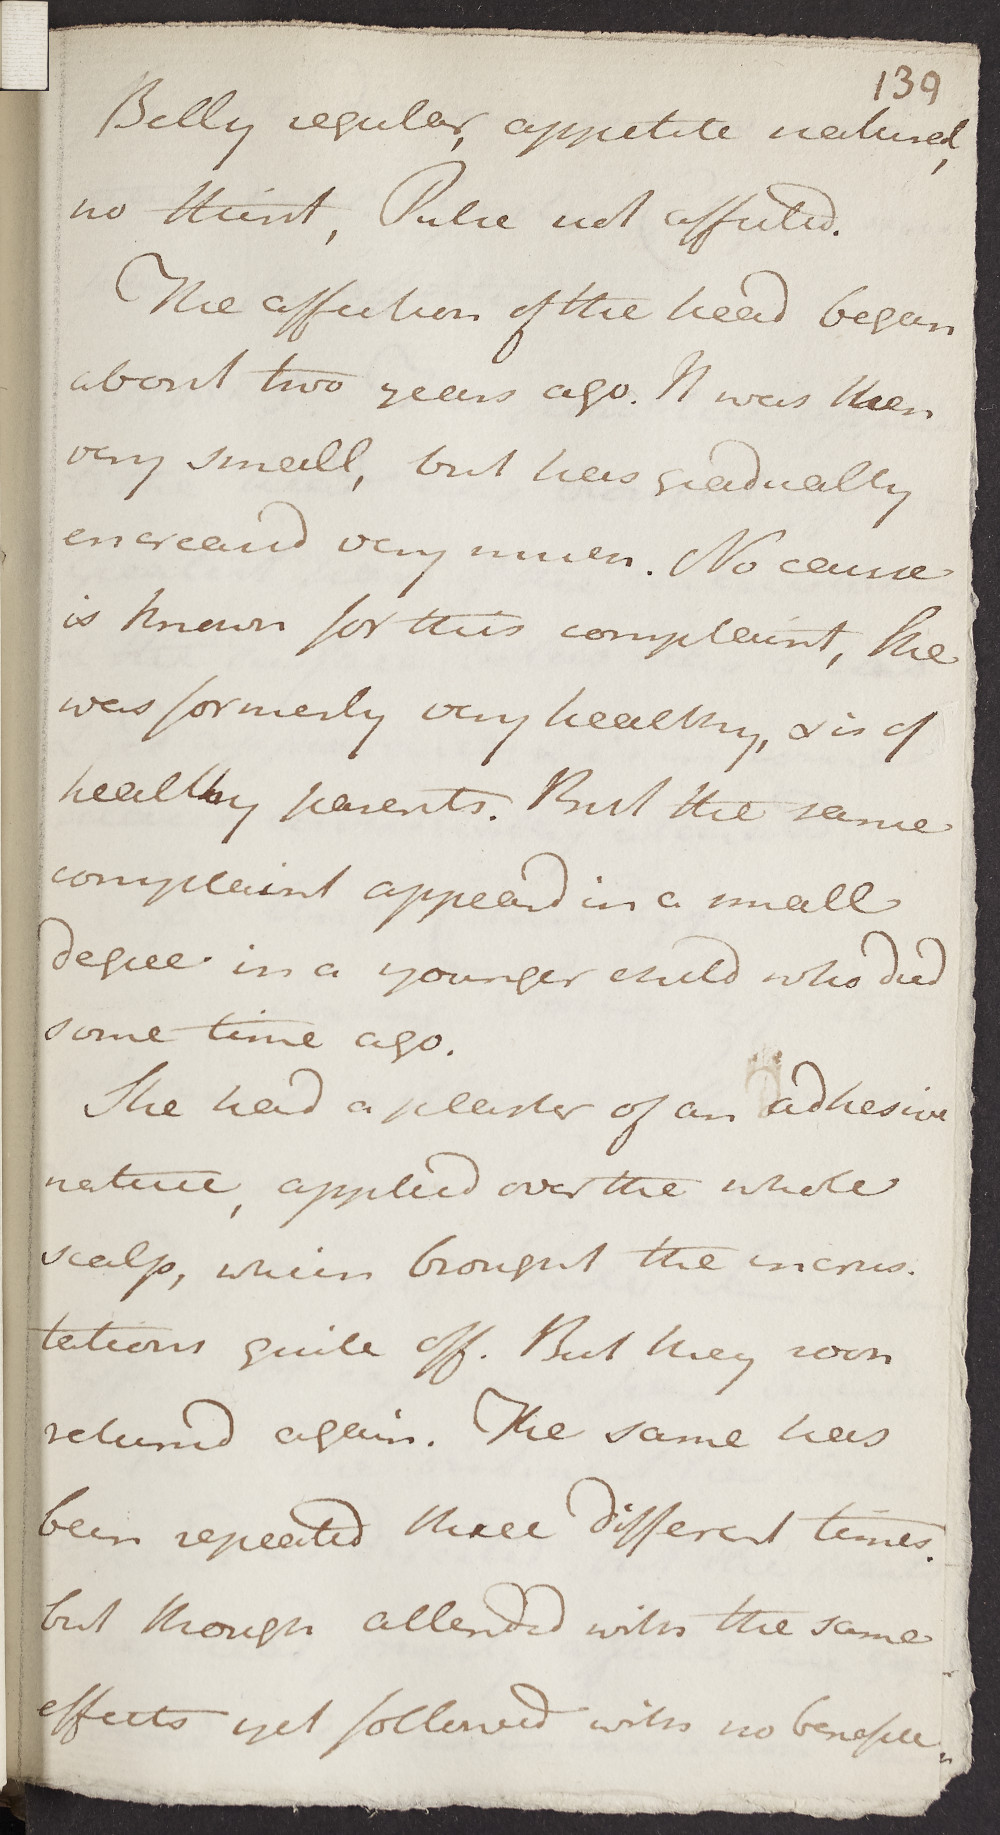 139
Belly regular, appetite natural,
no thirst, Pulse not affected.
The affection of the head began
about two years ago. It was then
very small, but has gradually
encreased very much. No cause
is known for this complaint, She
was formerly very healthy, & is of
healthy parents. But the same
complaint appeard in a small
degree in a younger child who died
some time ago.
She had a plaister of an adhesive
nature, applied over the whole
scalp, which brought the incrus-
tations quite off. But they soon
returned again. The same has
been repeated three different times.
but though attended with the same
effects yet followed with no benefici-